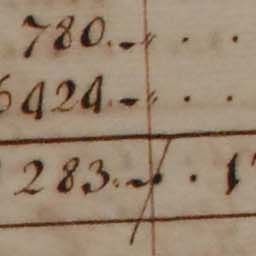 780.-" . .
6424.-" . .
283.-" . 1